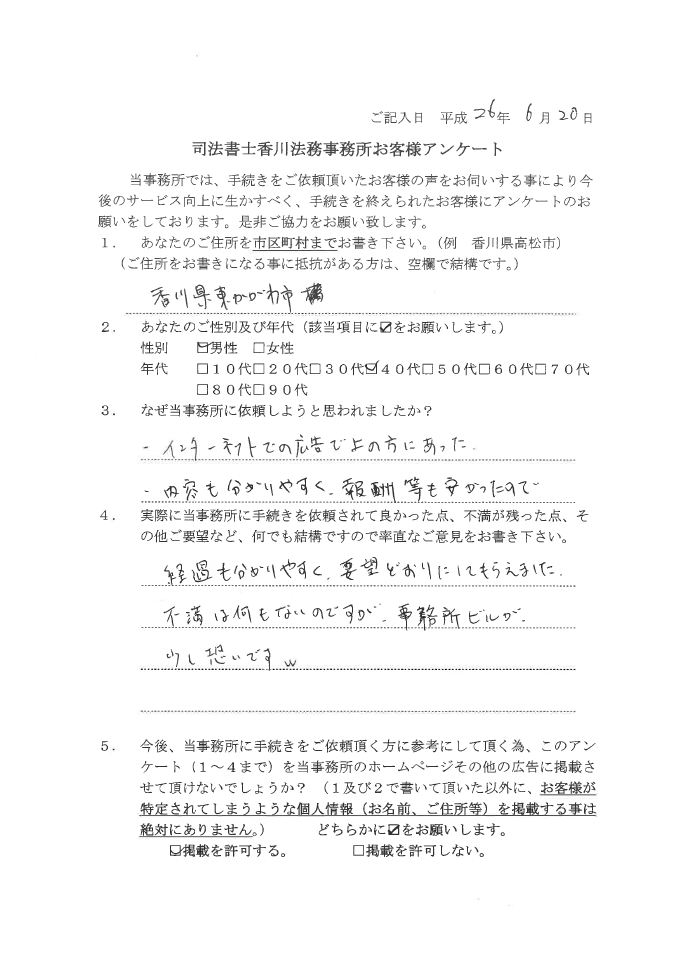 ご記入日　平成 26年　6月 20日
司法書士香川法務事務所お客様アンケート
当事務所では、手続きをご依頼頂いたお客様の声をお伺いする事により今
後のサービス向上に生かすべく、手続きを終えられたお客様にアンケートのお
願いをしております。是非ご協力をお願い致します。
１．　あなたのご住所を市区町村までお書き下さい。（例　香川県高松市）
（ご住所をお書きになる事に抵抗がある方は、空欄で結構です。）
香川県東かがわ市
２．　あなたのご性別及び年代（該当項目に☑をお願いします。）
性別　☑男性　□女性
年代　□１０代□２０代□３０代☑４０代□５０代□６０代□７０代
□８０代□９０代
３．　なぜ当事務所に依頼しようと思われましたか？
- インターネットでの広告で上の方にあった.
- 内容も分かりやすく、報酬等も安かったので
４．　実際に当事務所に手続きを依頼されて良かった点、不満が残った点、そ
の他ご要望など、何でも結構ですので率直なご意見をお書き下さい。
経過も分かりやすく、要望どおりにしてもらえました.
不満は何もないのですが、事務所ビルが、
少し恐いです w
５．　今後、当事務所に手続きをご依頼頂く方に参考にして頂く為、このアン
ケート（１～４まで）を当事務所のホームページその他の広告に掲載さ
せて頂けないでしょうか？　（１及び２で書いて頂いた以外に、お客様が
特定されてしまうような個人情報（お名前、ご住所等）を掲載する事は
絶対にありません。）　　どちらかに☑をお願いします。
☑掲載を許可する。　　□掲載を許可しない。